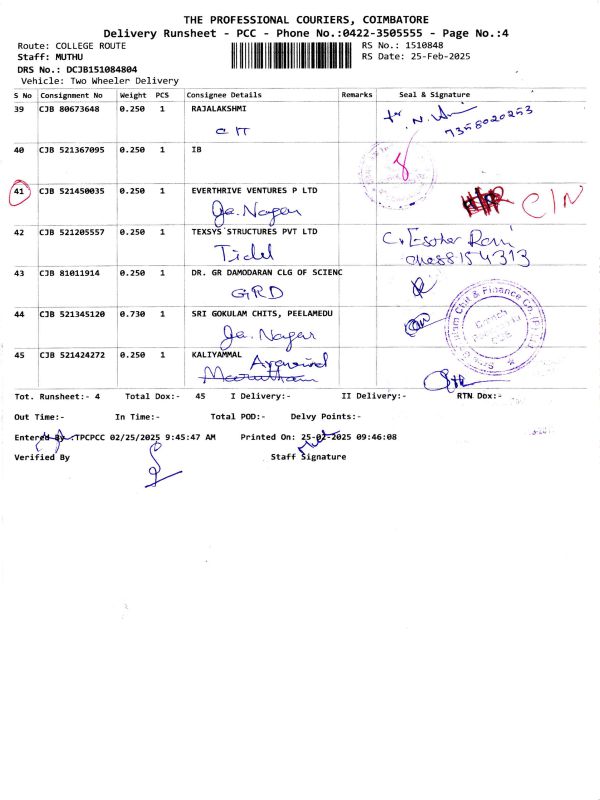 THE PROFESSIONAL COURIERS, COIMBATORE
Delivery Runsheet - PCC - Phone No.:0422-3505555 - Page No.:4
Route: COLLEGE ROUTE
RS No.: 1510848
Staff: MUTHU
RS Date: 25-Feb-2025
DRS No.: DCJB151084804
Vehicle: Two Wheeler Delivery
S No Consignment No Weight PCS Consignee Details Remarks Seal & Signature
39 CJB 80673648 0.250 1 RAJALAKSHMI
7358020253
40 CJB 521367095 0.250 1 IB
8
41 CJB 521450035 0.250 1 EVERTHRIVE VENTURES P LTD
Ge. Nagar
C/N
42 CJB 521205557 0.250 1 TEXSYS STRUCTURES PVT LTD
Tidel
C. Esther Rani
43 CJB 81011914 0.250 1 DR. GR DAMODARAN CLG OF SCIENC
GRD
44 CJB 521345120 0.730 1 SRI GOKULAM CHITS, PEELAMEDU
Ge. Nagar
45 CJB 521424272 0.250 1 KALIYAMMAL
Aravind
Tot. Runsheet:- 4 Total Dox:- 45 I Delivery:- II Delivery:- RTN Dox:-
Out Time:- In Time:- Total POD:- Delvy Points:-
Entered By :TPCPCC 02/25/2025 9:45:47 AM Printed On: 25-02-2025 09:46:08
Verified By Staff Signature